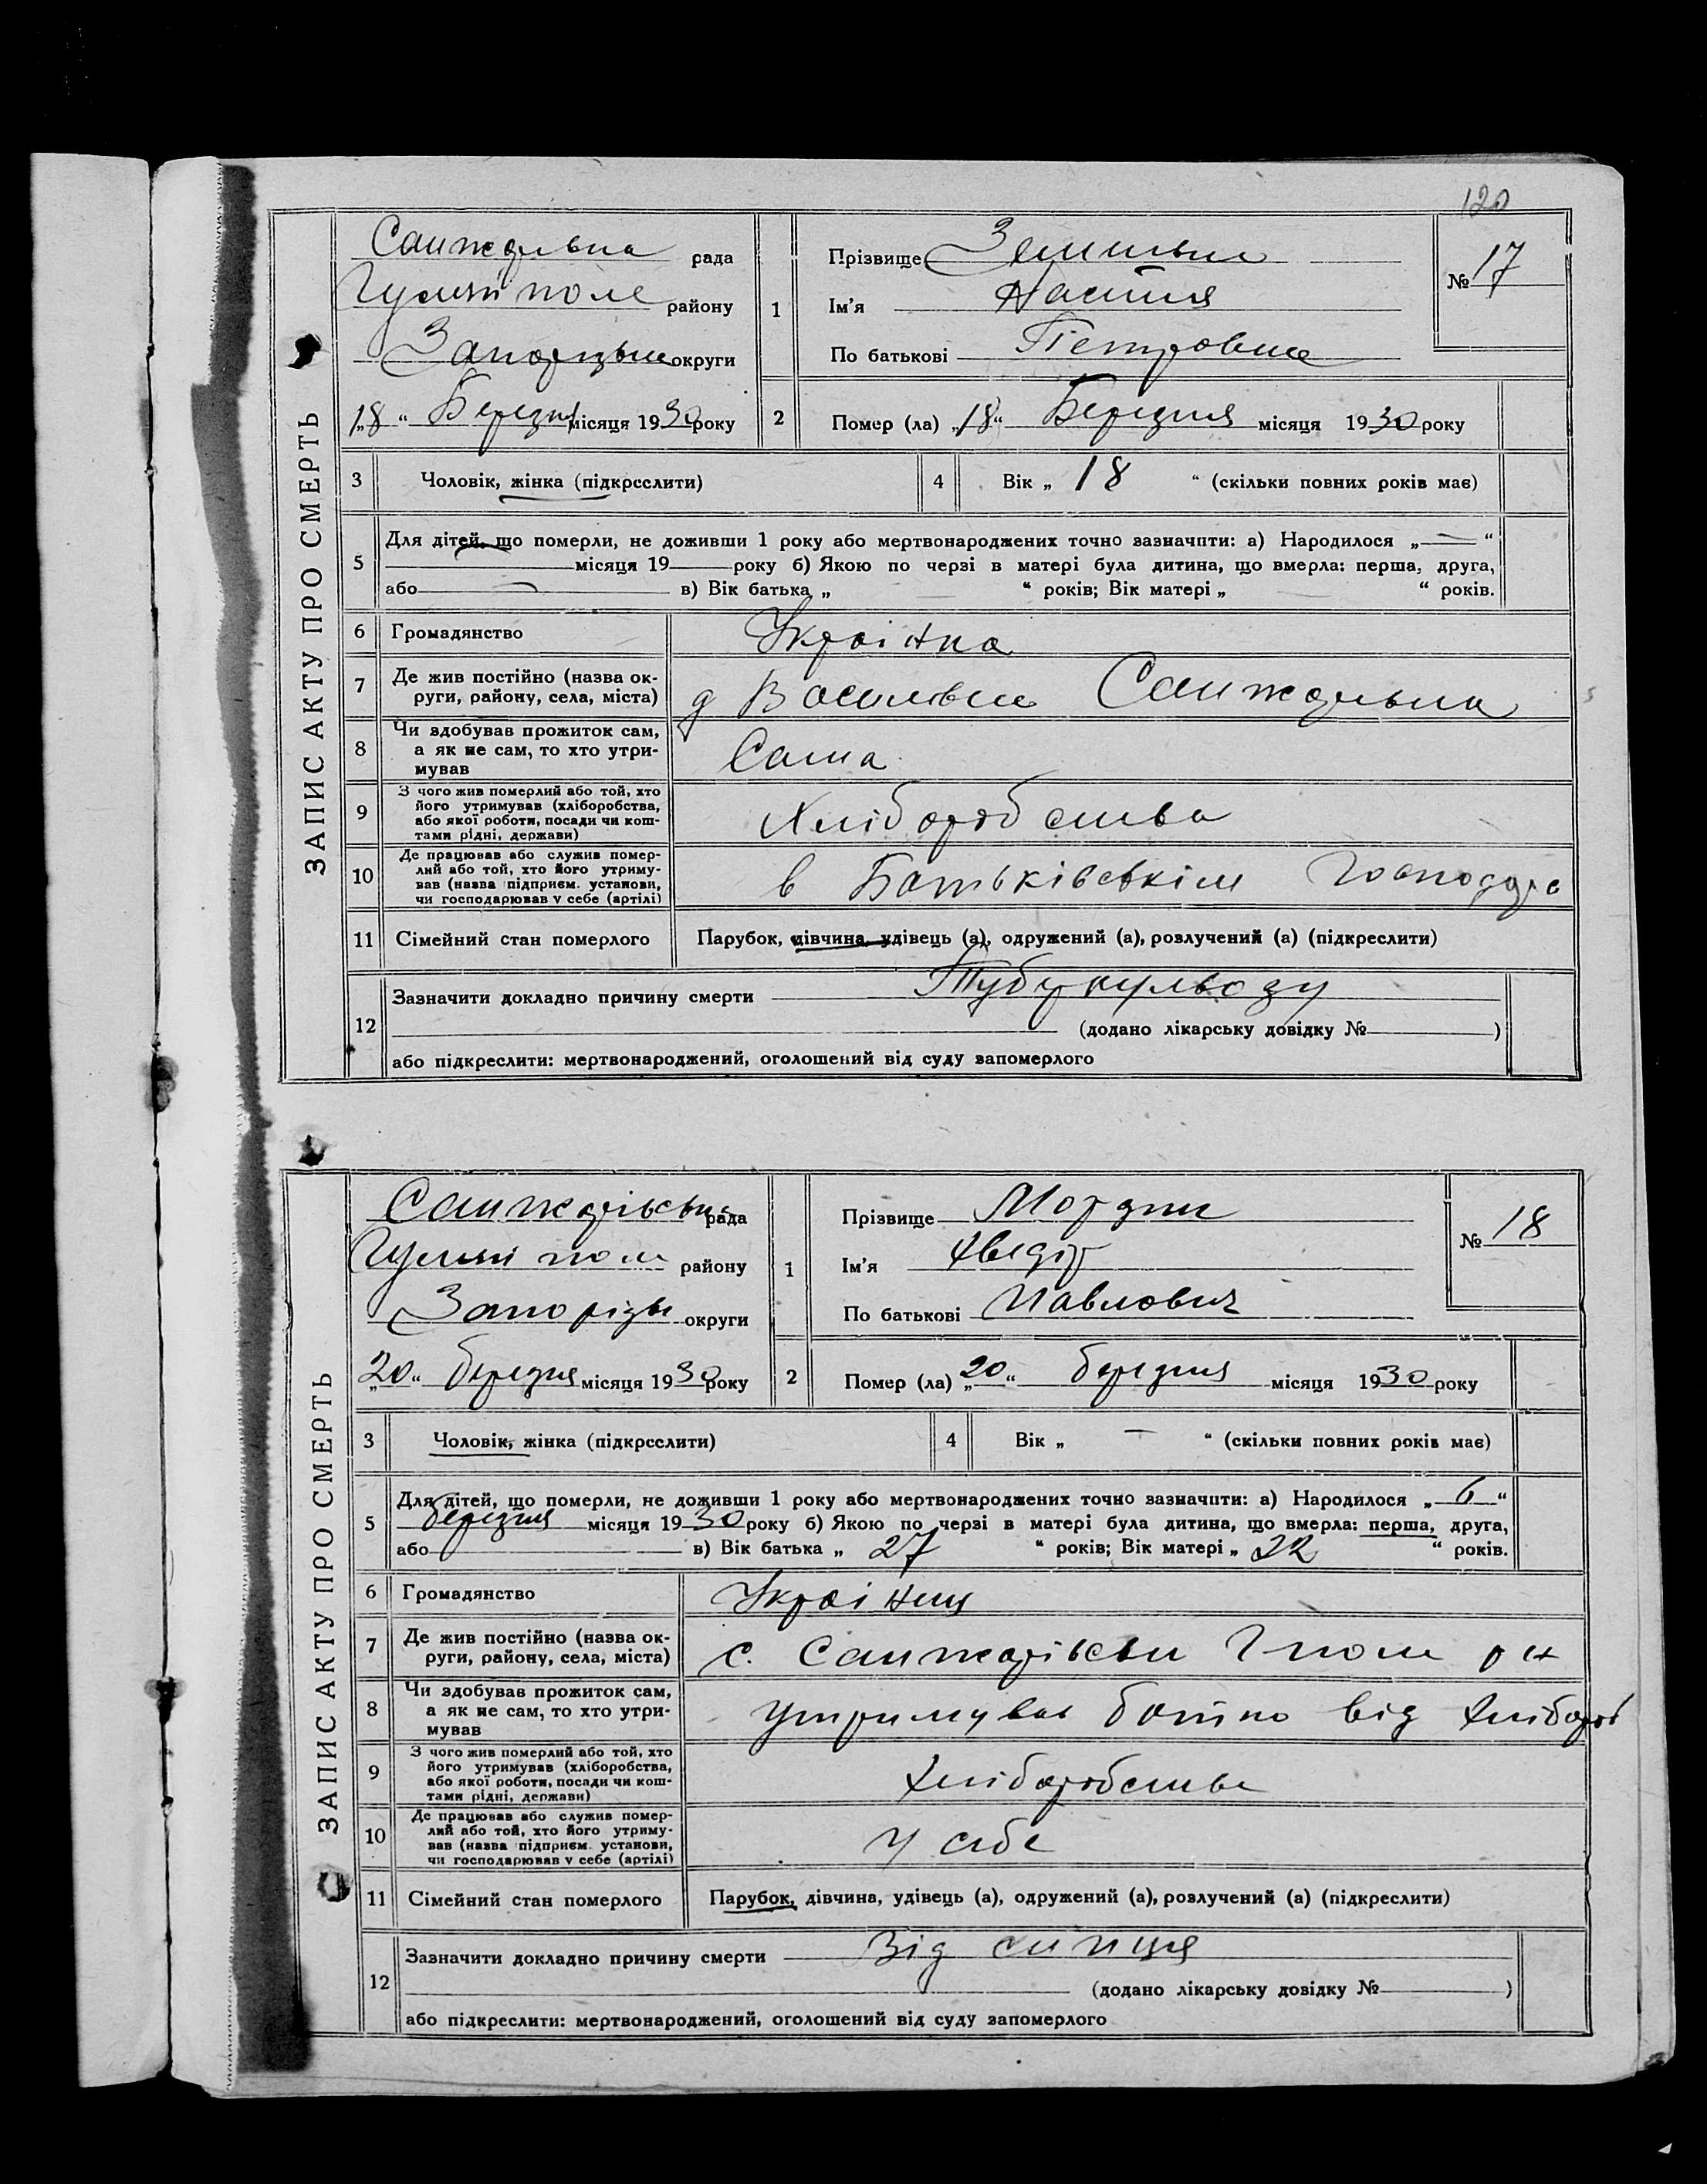 120
ЗАПИС АКТУ ПРО СМЕРТЬ
рада
району
округи
„18“ Березня місяця 1930 року
1
Прізвище
Ім’я Настя
По батькові Петровна
№ 17
2
Помер (ла) „18“ Березня місяця 1930 року
3 Чоловік, жінка (підкреслити)
4 Вік „ 18 “ (скільки повних років має)
5 Для дітей, що померли, не доживши 1 року або мертвонароджених точно зазначити: а) Народилося „ — “
місяця 19 року б) Якою по черзі в матері була дитина, що вмерла: перша, друга,
або — в) Вік батька „ “ років; Вік матері „ “ років.
6 Громадянство Украінка
7 Де жив постійно (назва ок-
руги, району, села, міста)
д
8 Чи здобував прожиток сам,
а як не сам, то хто утри-
мував
Сама
9 З чого жив померлий або той, хто
його утримував (хліборобства,
або якої роботи, посади чи кош-
тами рідні, держави)
Хліборобства
10 Де працював або служив помер-
лий або той, хто його утриму-
вав (назва підприєм. установи,
чи господарював у себе (артілі)
в Батьківськім Господарс
11 Сімейний стан померлого Парубок, дівчина, удівець (а), одружений (а), розлучений (а) (підкреслити)
12 Зазначити докладно причину смерти Тубуркульозу
(додано лікарську довідку № )
або підкреслити: мертвонароджений, оголошений від суду запомерлого
ЗАПИС АКТУ ПРО СМЕРТЬ
рада
району
округи
„20“ березня місяця 1930 року
1
Прізвище
Ім’я Хведір
По батькові Павлович
№ 18
2
Помер (ла) „20“ березня місяця 1930 року
3 Чоловік, жінка (підкреслити)
4 Вік „ — “ (скільки повних років має)
5 Для дітей, що померли, не доживши 1 року або мертвонароджених точно зазначити: а) Народилося „ 6 “
березня місяця 1930 року б) Якою по черзі в матері була дитина, що вмерла: перша, друга,
або в) Вік батька „ 27 “ років; Вік матері „ 22 “ років.
6 Громадянство Украінец
7 Де жив постійно (назва ок-
руги, району, села, міста)
с. Г поле рн
8 Чи здобував прожиток сам,
а як не сам, то хто утри-
мував
утримував батько від хлібороб
9 З чого жив померлий або той, хто
його утримував (хліборобства,
або якої роботи, посади чи кош-
тами рідні, держави)
хліборобства
10 Де працював або служив помер-
лий або той, хто його утриму-
вав (назва підприєм. установи,
чи господарював у себе (артілі)
у себе
11 Сімейний стан померлого Парубок, дівчина, удівець (а), одружений (а), розлучений (а) (підкреслити)
12 Зазначити докладно причину смерти Від
(додано лікарську довідку № )
або підкреслити: мертвонароджений, оголошений від суду запомерлого